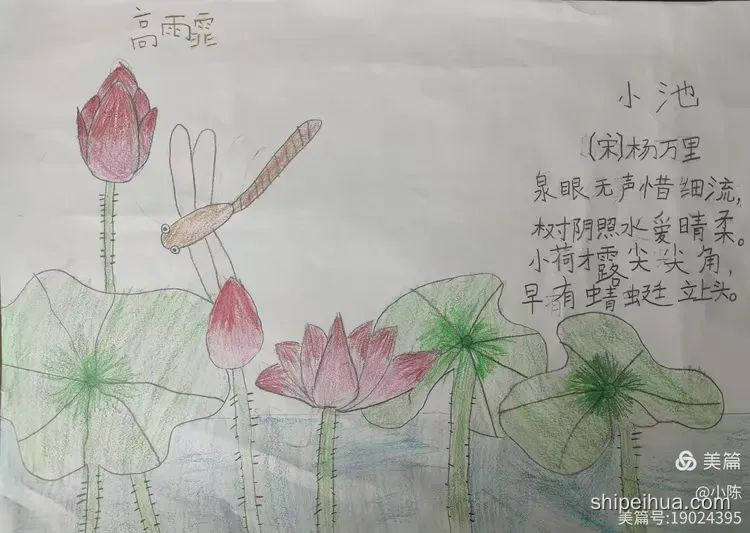 高雨霏
小池
(宋)杨万里
泉眼无声惜细流,
树阴照水爱晴柔。
小荷才露尖尖角,
早有蜻蜓立上头。
美篇
@小陈
shipeihua.com
美篇号:19024395